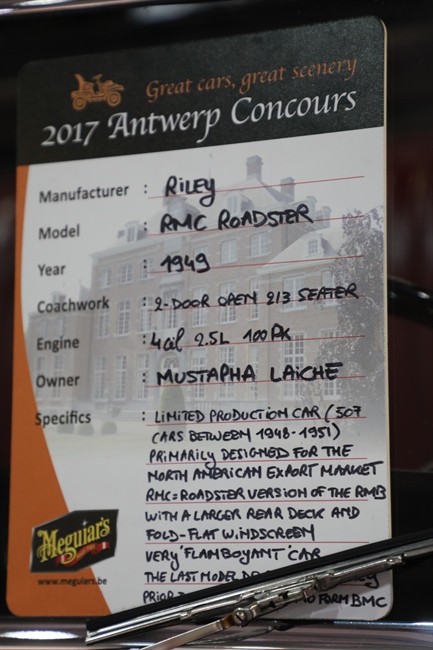 Great cars, great scenery
2017 Antwerp Concours
Manufacturer : RILEY
Model : RMC ROADSTER
Year : 1949
Coachwork : 2-DOOR OPEN 2/3 SEATER
Engine : 4cil 2.5L 100PK
Owner : MUSTAPHA LAICHE
Specifics : LIMITED PRODUCTION CAR (507
CARS BETWEEN 1948-1951)
PRIMARILY DESIGNED FOR THE
NORTH AMERICAN EXPORT MARKET
RMC=ROADSTER VERSION OF THE RMB
WITH A LARGER REAR DECK AND
FOLD-FLAT WINDSCREEN
VERY 'FLAMBOYANT' CAR
THE LAST MODEL
PRIOR TO FORM BMC
Meguiar's
www.meguiars.be